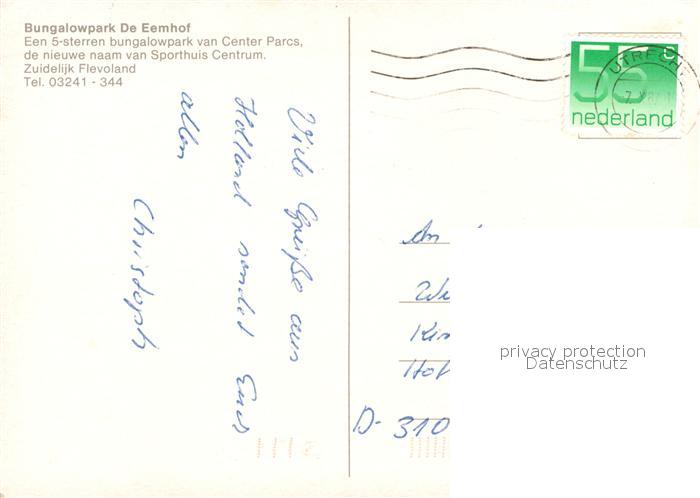 Bungalowpark De Eemhof
Een 5-sterren bungalowpark van Center Parcs,
de nieuwe naam van Sporthuis Centrum.
Zuidelijk Flevoland
Tel. 03241 - 344
Viele Grüße aus
Holland sendet Euch
allen
Christoph
55c
nederland
UTRECHT
An
D- 310
privacy protection
Datenschutz